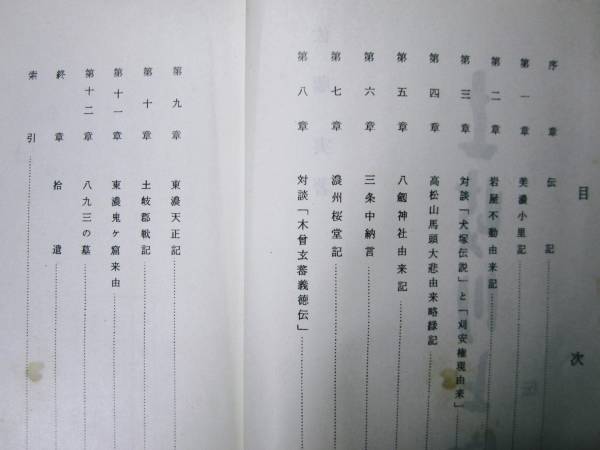 目次
序章 伝記
第一章 美濃小里記
第二章 岩屋不動由来記
第三章 対談「犬塚伝説」と「刈安権現由来」
第四章 高松山馬頭大悲由来略縁記
第五章 八剱神社由来記
第六章 三条中納言
第七章 濃州桜堂記
第八章 対談「木曾玄蕃義徳伝」
第九章 東濃天正記
第十章 土岐郡戦記
第十一章 東濃鬼ヶ窟来由
第十二章 八九三の墓
終章 拾遺
索引